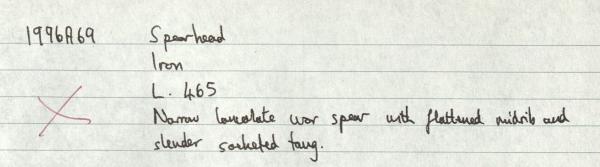 1996A69 Spearhead
Iron
L. 465
Narrow lanceolate war spear with flattened midrib and
slender socketed tang.